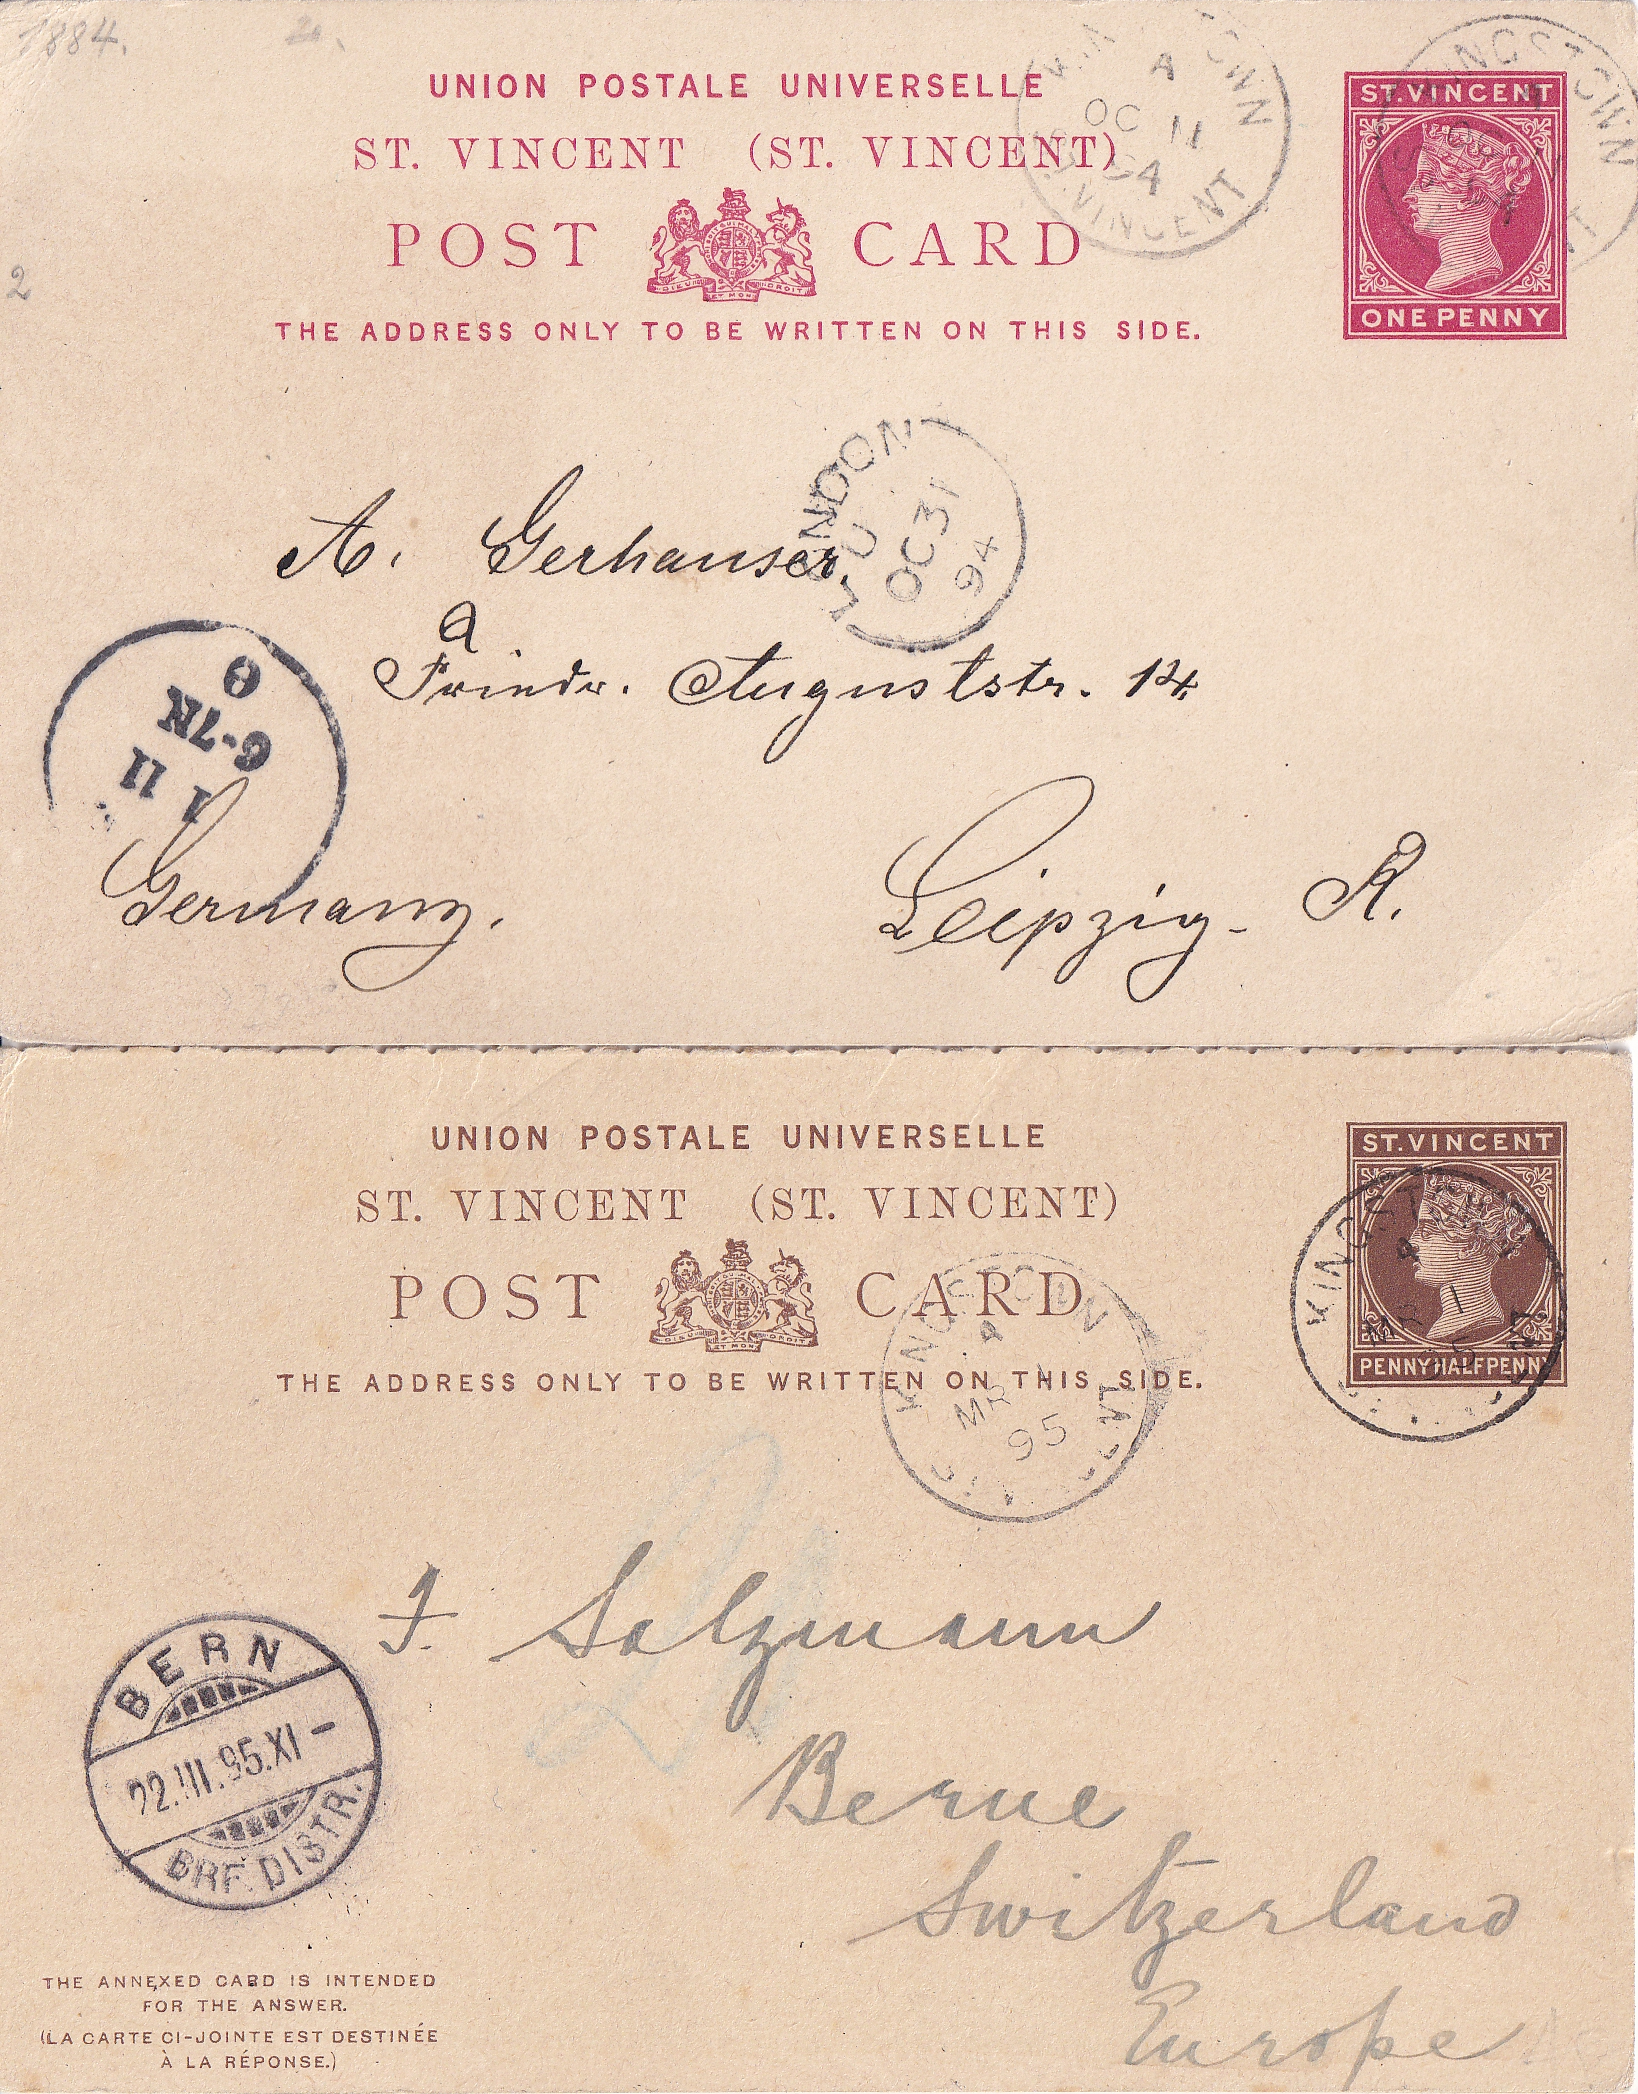 1884.
UNION POSTALE UNIVERSELLE
ST. VINCENT (ST. VINCENT)
POST CARD
DIEU ET MON DROIT
THE ADDRESS ONLY TO BE WRITTEN ON THIS SIDE.
A
OC 11
94
ST. VINCENT
ST. VINCENT
ONE PENNY
KINGSTOWN
2
LONDON
OC 31
94
A. Gerhauser.
a
Friedr. Auguststr. 14.
6-7N
1 11
Germany.
Leipzig- R.
UNION POSTALE UNIVERSELLE
ST. VINCENT (ST. VINCENT)
POST CARD
DIEU ET MON DROIT
THE ADDRESS ONLY TO BE WRITTEN ON THIS SIDE.
ST. VINCENT
PENNY HALFPENNY
KINGSTOWN
A
MR 1
95
KINGSTOWN
A
MR
95
BERN
22.III.95.XI-
BRF. DISTR.
J. Salzmann
Berne
Switzerland
Europe
THE ANNEXED CARD IS INTENDED
FOR THE ANSWER.
(LA CARTE CI-JOINTE EST DESTINÉE
À LA RÉPONSE.)